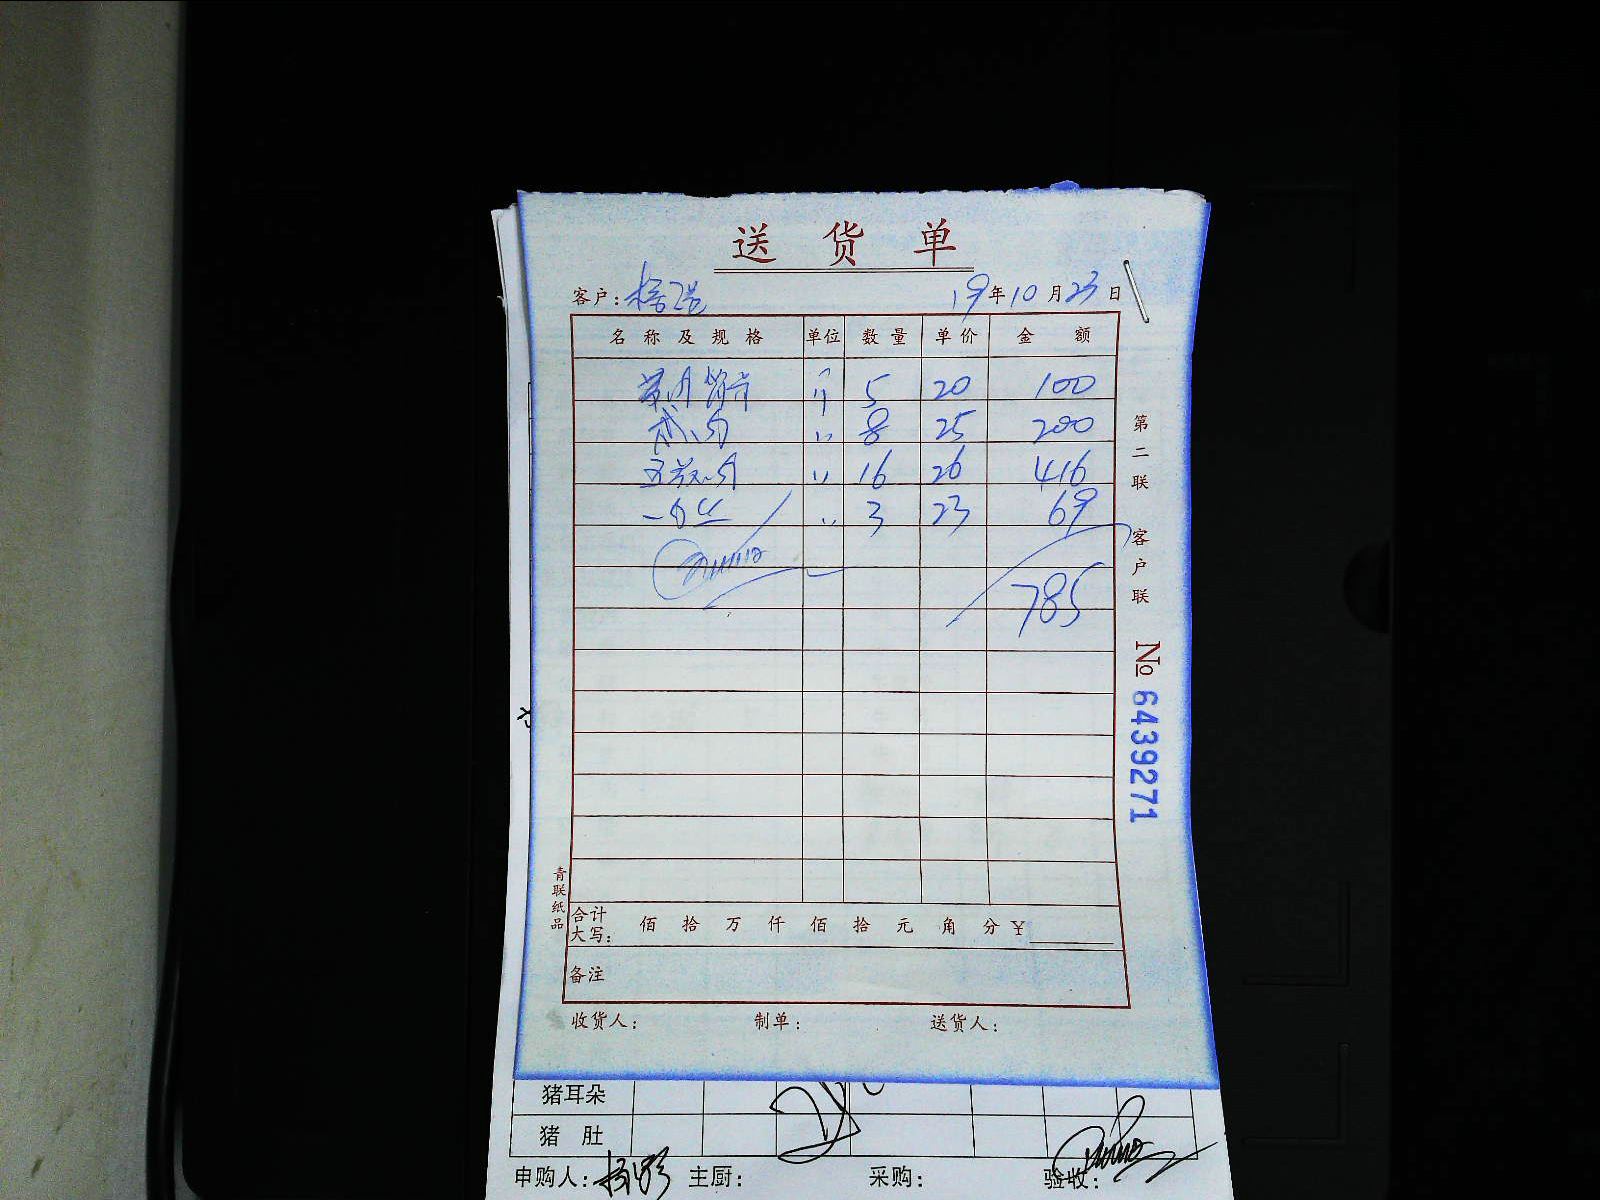 送货单
客户: 19年10月23日
名称及规格 单位 数量 单价 金额
5 20 100
8 25 200
五花肉 16 26 416
3 23 69
785
合计大写: 佰 拾 万 仟 佰 拾 元 角 分 ¥
备注
收货人: 制单: 送货人:
第二联 客户联
No 6439271
青联纸品
猪耳朵
猪肚
申购人: 主厨: 采购: 验收: